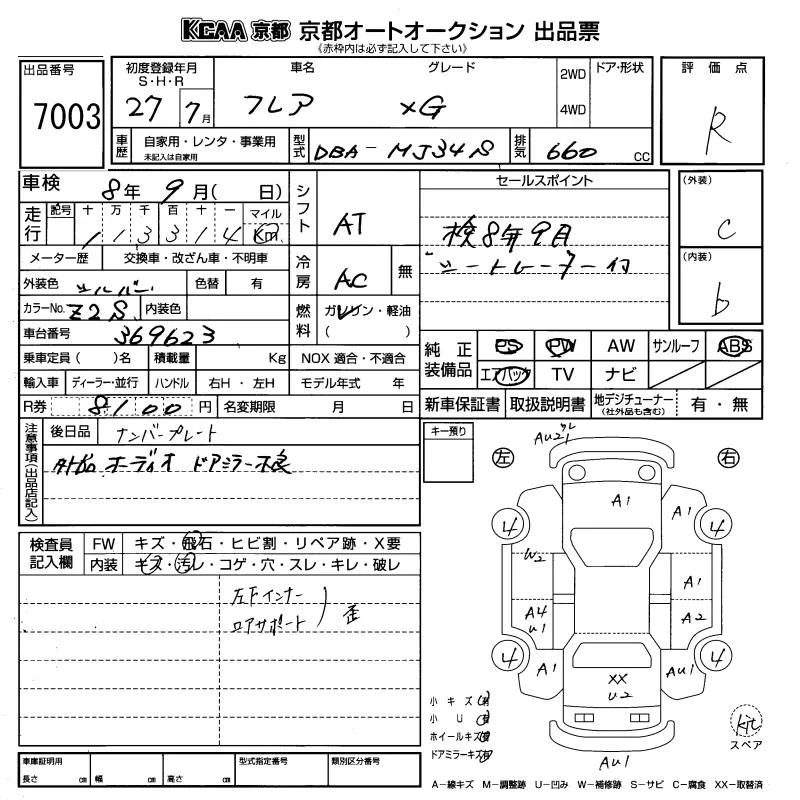 KCAA 京都 京都オートオークション 出品票
《赤枠内は必ず記入して下さい》
出品番号
7003
初度登録年月
S・H・R
27 7月
車名
フレア
グレード
XG
2WD
4WD
ドア・形状
評価点
R
車歴
自家用・レンタ・事業用
未記入は自家用
型式
DBA-MJ34S
排気
660 cc
車検
8年 9月( 日)
走行
記号 十 万 千 百 十 一 マイル
1 1 3 3 1 4 Km
メーター歴 交換車・改ざん車・不明車
外装色 シルバー 色替 有
カラーNo. Z2S 内装色
車台番号 369623
乗車定員( )名 積載量 Kg
輸入車 ディーラー・並行 ハンドル 右H・左H
R券 8100 円 名変期限 月 日
シフト AT
冷房 AC 無
燃料 ガソリン・軽油
( )
NOX 適合・不適合
モデル年式 年
セールスポイント
検8年9月
シートヒーター付
(外装)
C
(内装)
b
純正装備品
PS PW AW サンルーフ ABS
エアバック TV ナビ
新車保証書 取扱説明書 地デジチューナー
(社外品も含む)
有・無
注意事項(出品店記入)
後日品 ナンバープレート
外品オーディオ ドアミラー不良
キー預り
検査員記入欄
FW キズ・飛石・ヒビ割・リペア跡・X要
内装 キズ・汚レ・コゲ・穴・スレ・キレ・破レ
左Fインナー
ロアサポート
歪
左
右
AU21
A1
A1
4
4
W2
A1
A4
U1
A2
4
4
A1
XX
U2
AU1
AU1
小キズ
小U
ホイールキズ
ドアミラーキズ
スペア
車庫証明用
長さ cm 幅 cm 高さ cm
型式指定番号
類別区分番号
A-線キズ M-調整跡 U-凹み W-補修跡 S-サビ C-腐食 XX-取替済